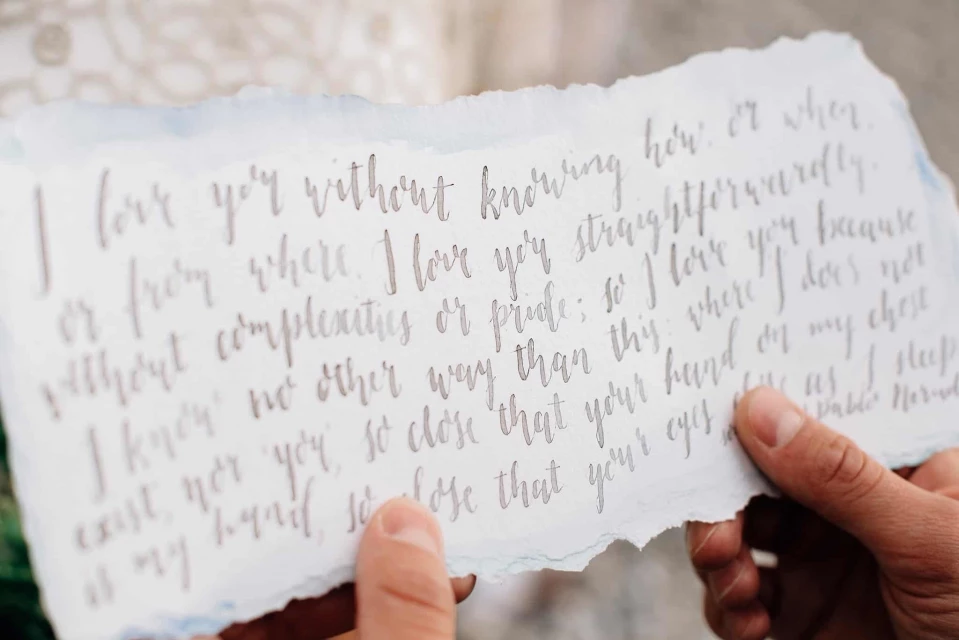 I love you without knowing how, or when,
or from where. I love you straightforwardly,
without complexities or pride; so I love you because
I know no other way than this where I does not
exist, nor you, so close that your hand on my chest
is my hand, so close that your eyes close as I sleep
Pablo Neruda